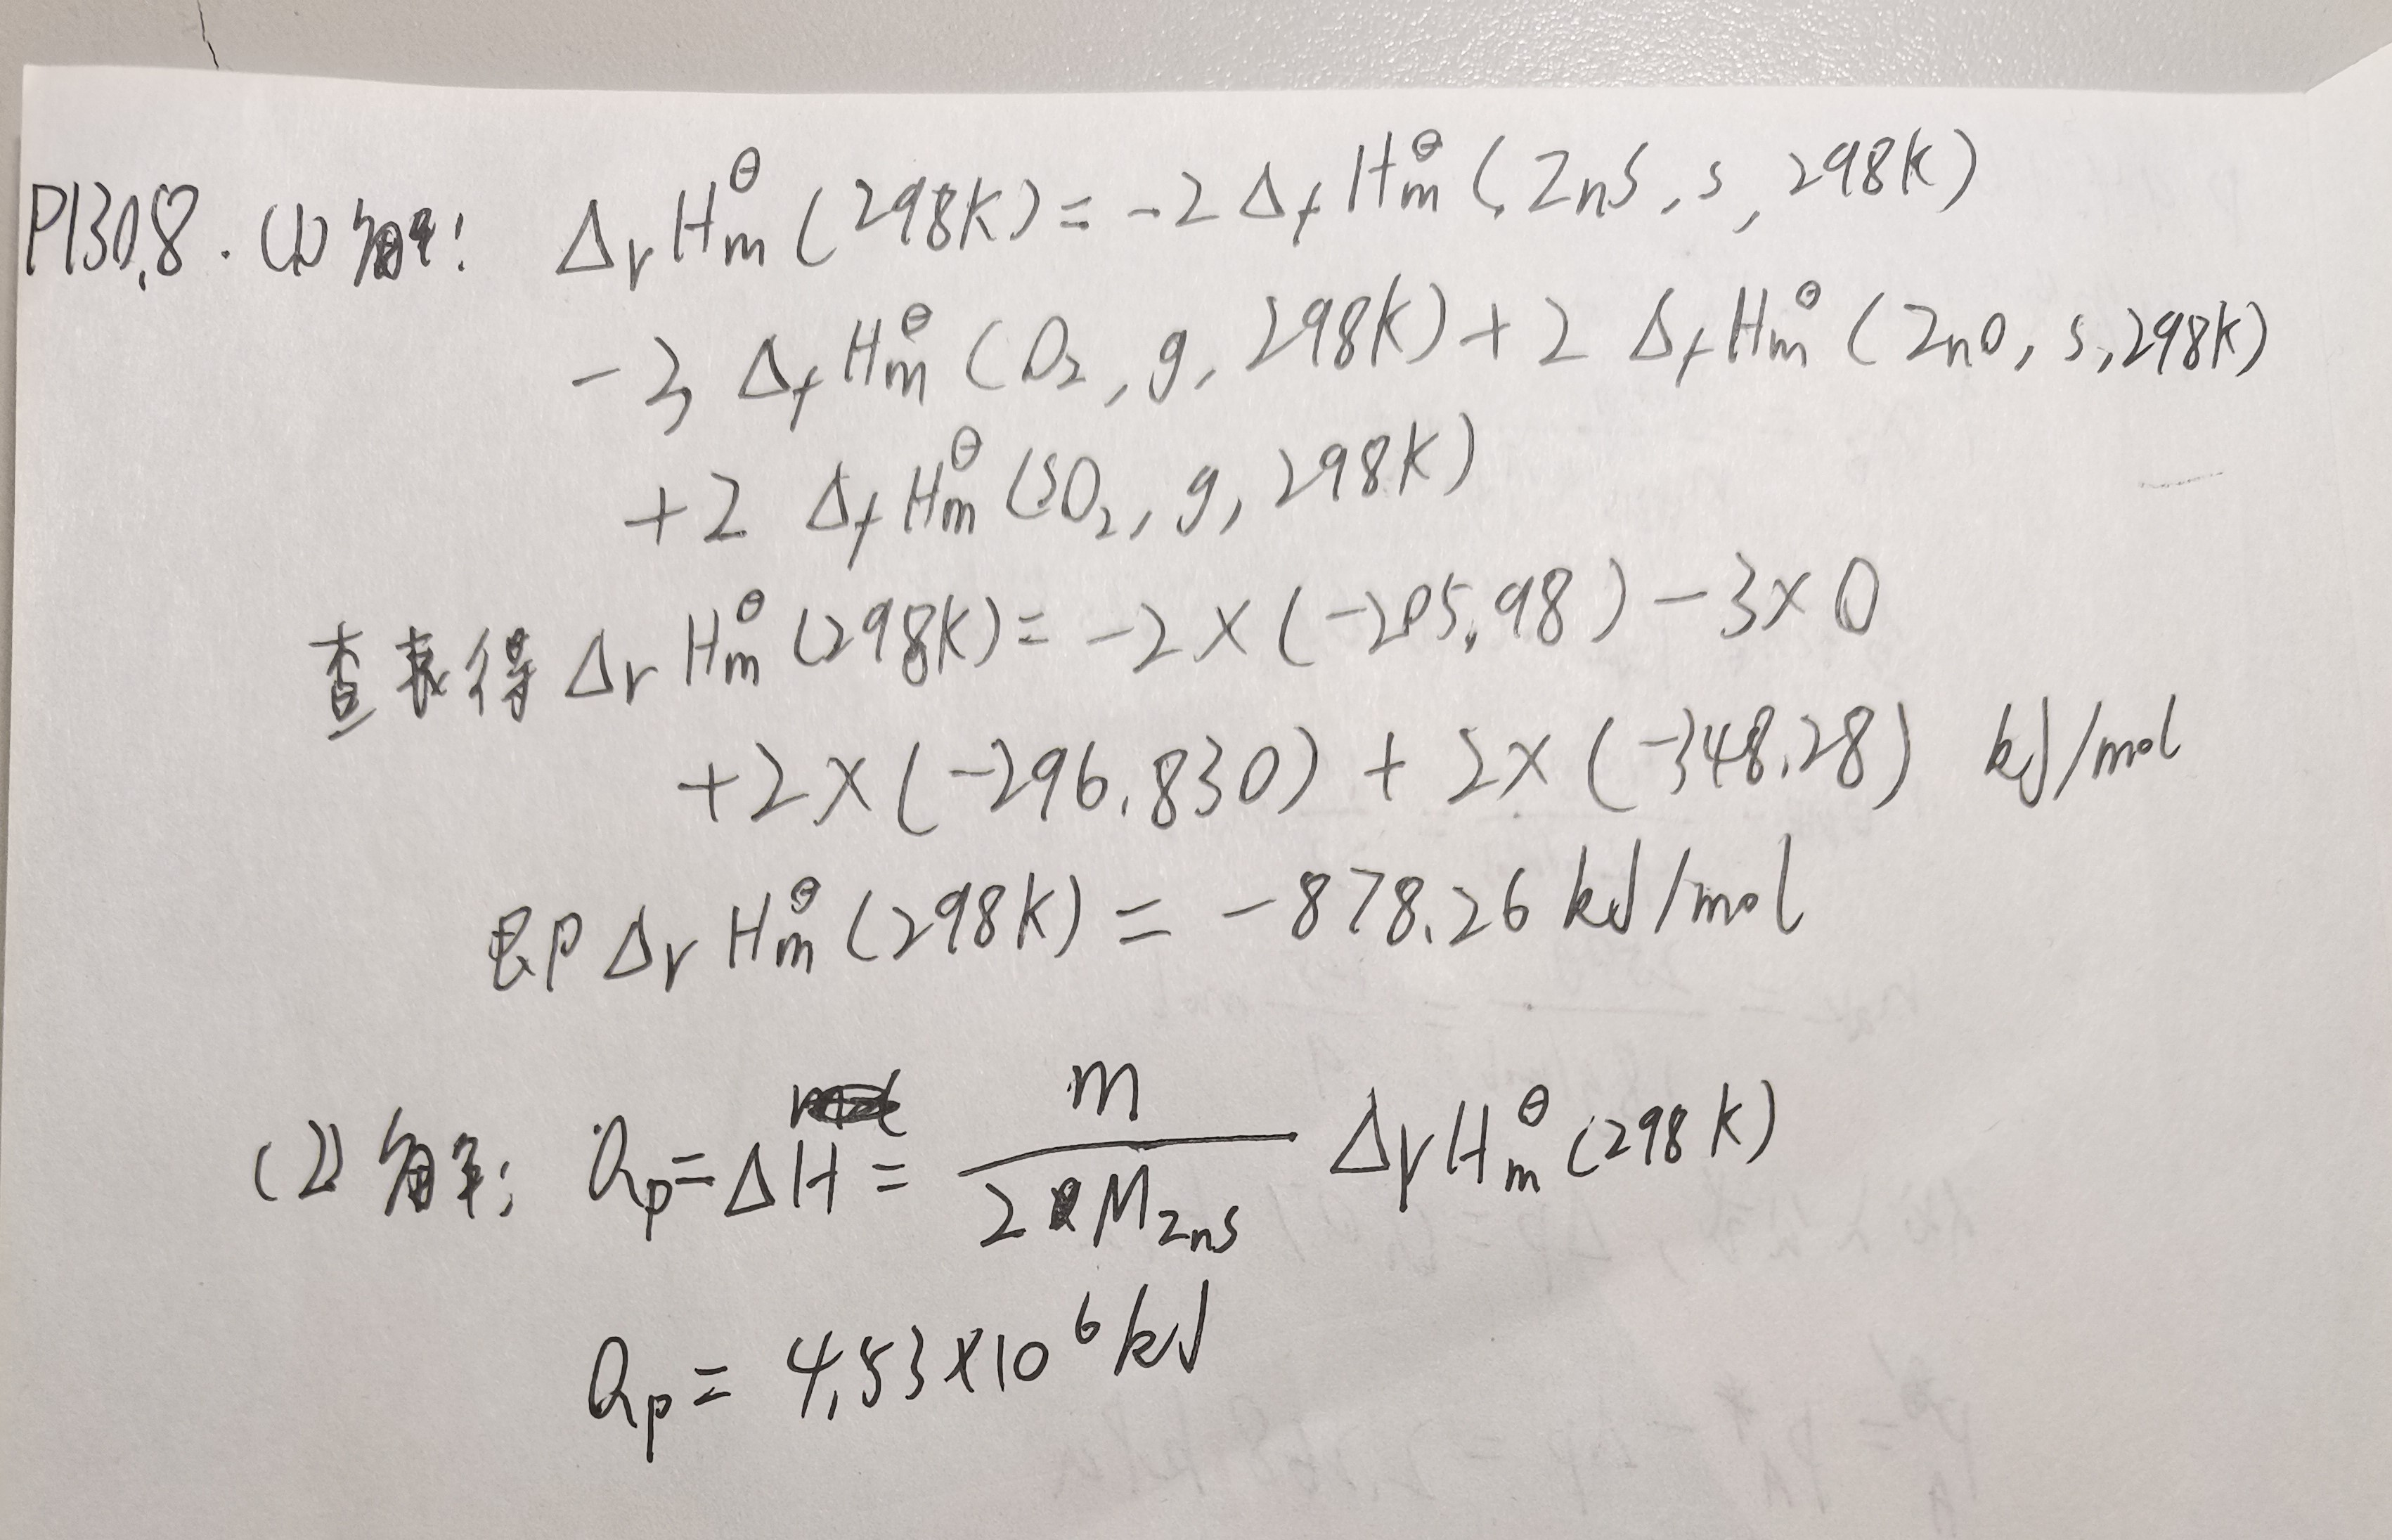 P130,8. (1) 解: ΔrHm^θ(298K) = -2ΔfHm^θ(ZnS, s, 298K)
-3 ΔfHm^θ(O₂, g, 298K) + 2 ΔfHm^θ(ZnO, s, 298K)
+2 ΔfHm^θ(SO₂, g, 298K)
查表得 ΔrHm^θ(298K) = -2×(-205.98) -3×0
+2×(-296.830) + 2×(-348.28) kJ/mol
即 ΔrHm^θ(298K) = -878.26 kJ/mol
(2) 解: Qp = ΔH = m/(2M_ZnS) ΔrHm^θ(298K)
Qp = 4.53×10⁶ kJ